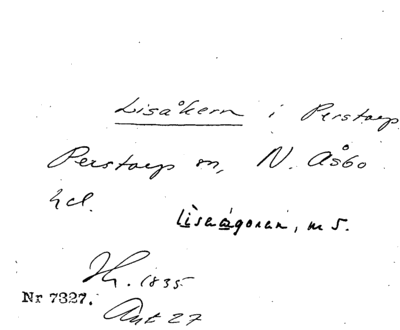 Lisåkern i Perstorp
Perstorp sn, N. Åsbo
hd.
lisaågoran, m 5.
1835
Nr 7327.
Ant 27